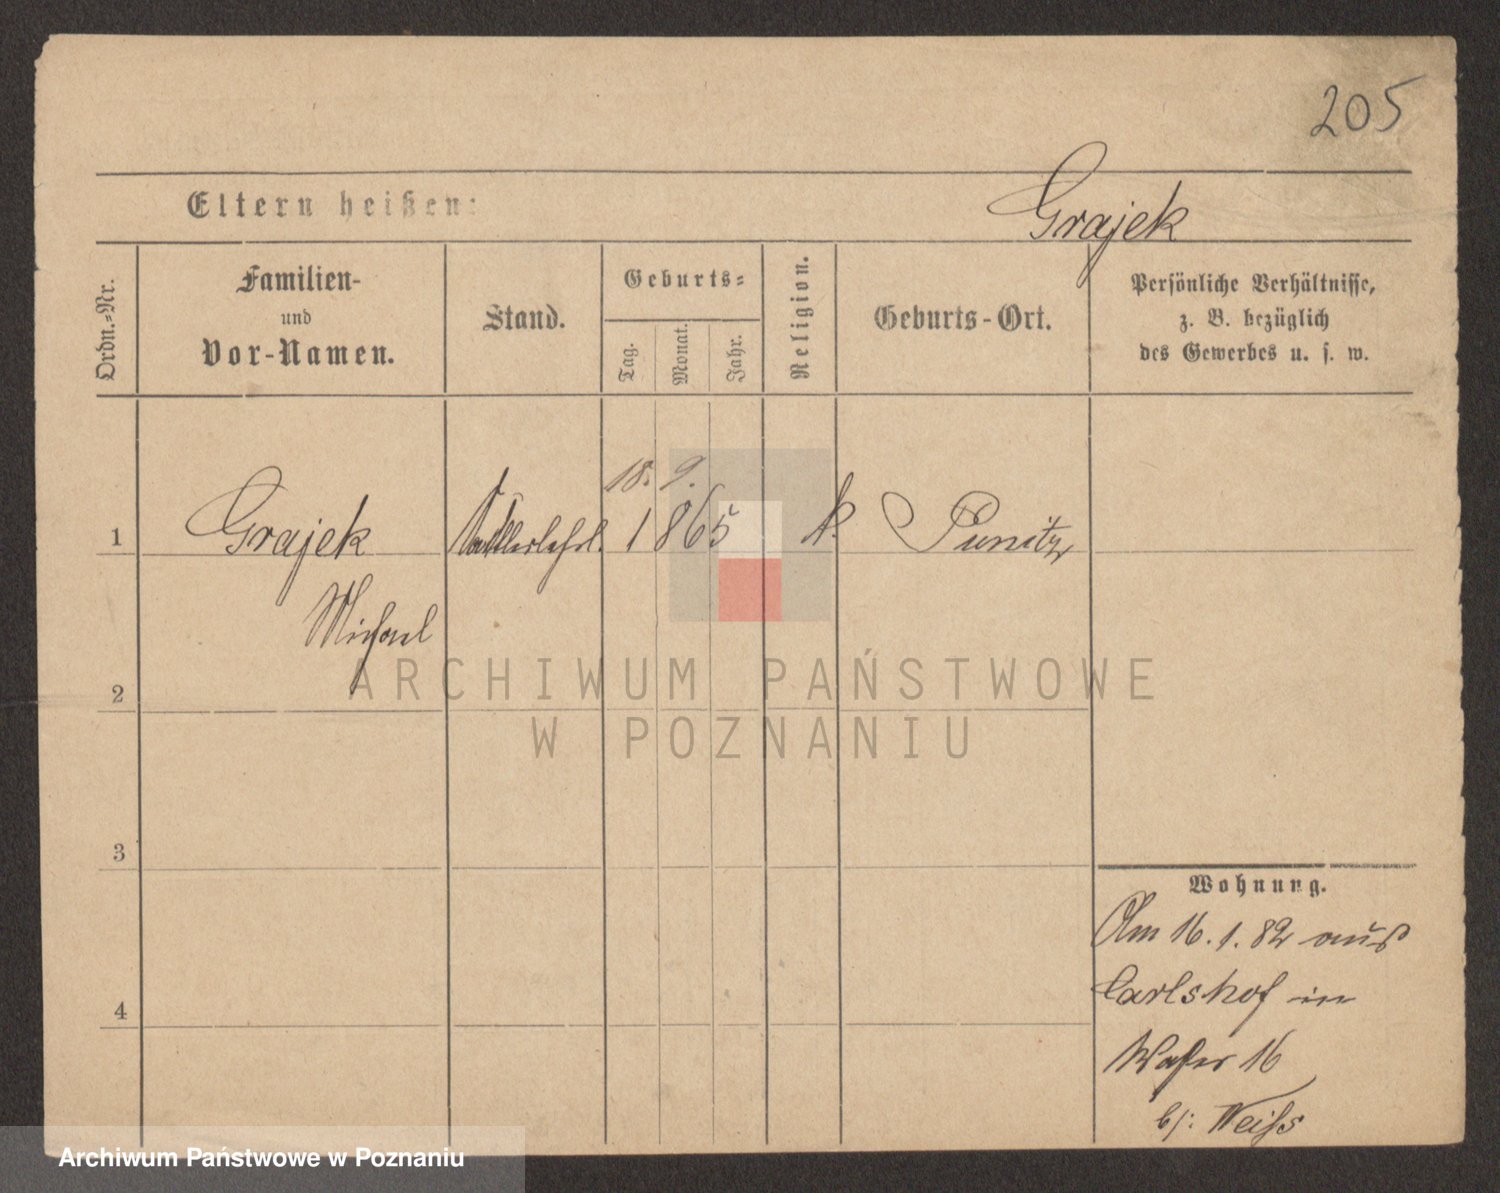 205
Eltern heißen:
Grajek
Ordn.-Nr.
Familien-
und
Vor-Namen.
Stand.
Geburts-
Tag.
Monat.
Jahr.
Religion.
Geburts-Ort.
Persönliche Verhältnisse,
z. B. bezüglich
des Gewerbes u. s. w.
18. 9.
1 Grajek 1865 k. Punitz
Michael
2
3
4
Wohnung.
Am 16. 1. 82 aus
Carlshof in
Wasser 16
b/: Weiss
ARCHIWUM PAŃSTWOWE
W POZNANIU
Archiwum Państwowe w Poznaniu